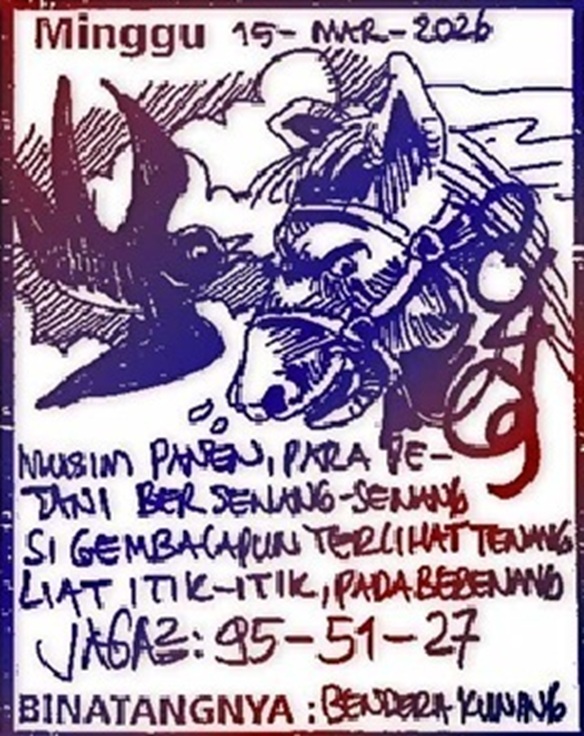 Minggu 15- MAR-2026
MUSIM PANEN, PARA PE-
TANI BERSENANG-SENANG
SI GEMBALAPUN TERLIHAT TENANG
LIAT ITIK-ITIK, PADA BERENANG
JAGA2: 95-51-27
BINATANGNYA : BENDERA KUNANG